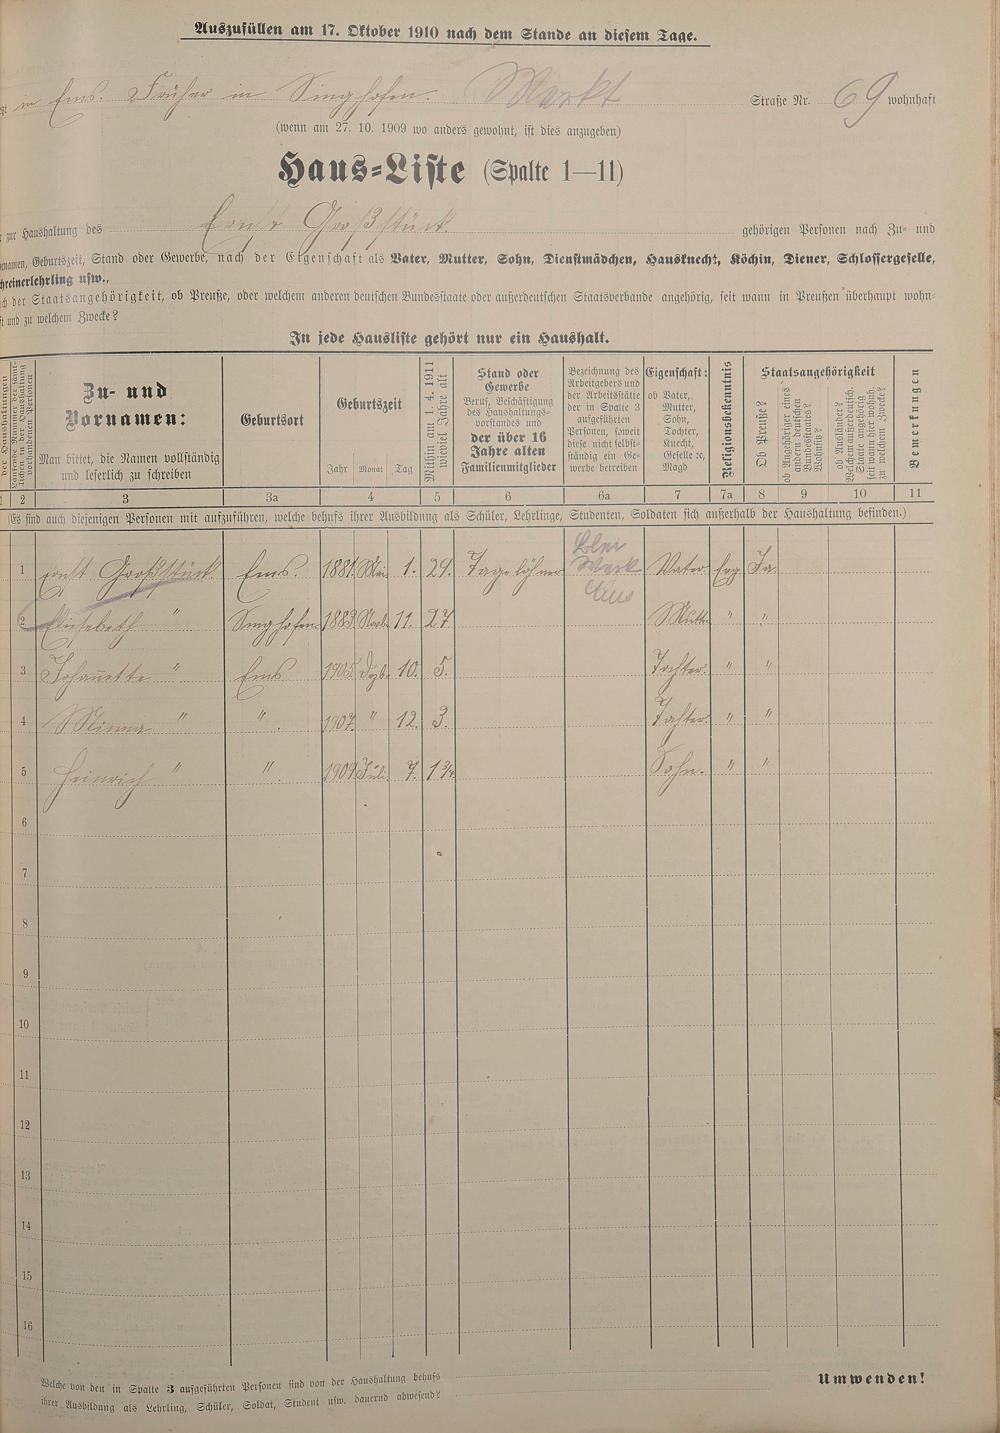 Auszufüllen am 17. Oktober 1910 nach dem Stande an diesem Tage.
in Ems. Früher in Singhofen. Markt Straße Nr. 69 wohnhaft
(wenn am 27. 10. 1909 wo anders gewohnt, ist dies anzugeben)
Haus-Liste (Spalte 1—11)
zur Haushaltung des Ernst Großstück gehörigen Personen nach Zu- und
Geburtszeit, Stand oder Gewerbe, nach der Eigenschaft als Vater, Mutter, Sohn, Dienstmädchen, Hausknecht, Köchin, Diener, Schlossergeselle,
usw.,
der Staatsangehörigkeit, ob Preuße, oder welchem anderen deutschen Bundesstaate oder außerdeutschen Staatsverbande angehörig, seit wann in Preußen überhaupt wohn-
und zu welchem Zwecke?
In jede Hausliste gehört nur ein Haushalt.
der Haushaltungen
Laufende Nummer der sämt-
lichen in der Haushaltung
vorhandenen Personen
Zu- und
Vornamen:
Man bittet, die Namen vollständig
und leserlich zu schreiben
Geburtsort
Geburtszeit
Jahr Monat Tag
Mithin am 1. 4. 1911
wieviel Jahre alt
Stand oder
Gewerbe
Beruf, Beschäftigung
des Haushaltungs-
vorstandes und
der über 16
Jahre alten
Familienmitglieder
Bezeichnung des
Arbeitgebers und
der Arbeitsstätte
der in Spalte 3
aufgeführten
Personen, soweit
diese nicht selbst-
ständig ein Ge-
werbe betreiben
Eigenschaft:
ob Vater,
Mutter,
Sohn,
Tochter,
Knecht,
Geselle ꝛc,
Magd
Religionsbekenntnis
Staatsangehörigkeit
Ob Preuße?
ob Angehöriger eines
andern deutschen
Bundesstaates?
Wohnsitz?
ob Ausländer?
Welchem außerdeutsch.
Staate angehörig
seit wann hier wohnh.
zu welchem Zwecke?
Bemerkungen
1 2 3 3a 4 5 6 6a 7 7a 8 9 10 11
(Es sind auch diejenigen Personen mit aufzuführen, welche behufs ihrer Ausbildung als Schüler, Lehrlinge, Studenten, Soldaten sich außerhalb der Haushaltung befinden.)
Blei
1 Ernst Großstück Ems. 1881 Mai 1. 29. Tagelöhner Werk Vater Evg. Ja.
Ems
2 Eliesebeth " Singhofen 1883 Novb. 11. 27 Mutter " "
3 Johanette " Ems 1905 Dezb. 10. 5. Tochter. " "
4 Minna " " 1907. " 12. 3. Tochter. " "
5 Heinrich " " 1909 Juli. 7. 1 3/4. Sohn. " "
6
7
8
9
10
11
12
13
14
15
16
Welche von den in Spalte 3 aufgeführten Personen sind von der Haushaltung behufs
ihrer Ausbildung als Lehrling, Schüler, Soldat, Student usw. dauernd abwesend?
Umwenden!